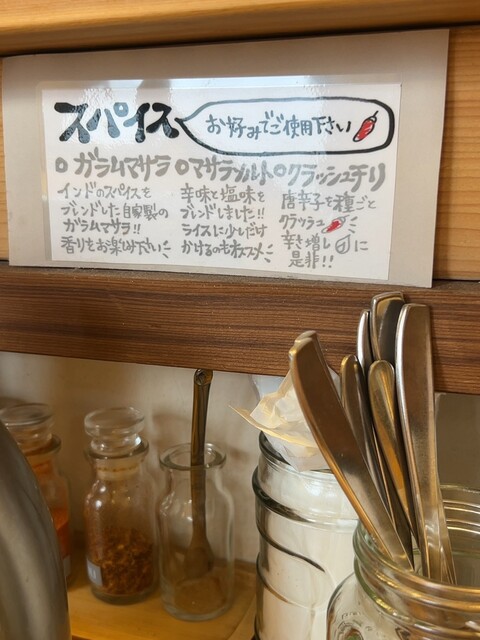 スパイス お好みでご使用下さい
○ ガラムマサラ
インドのスパイスを
ブレンドした自家製の
ガラムマサラ!!
香りをお楽しみ下さい
○ マサラソルト
辛味と塩味を
ブレンドしました!!
ライスに少しだけ
かけるのもオススメ
○ クラッシュチリ
唐辛子を種ごと
クラッシュ
辛さ増し に
是非!!